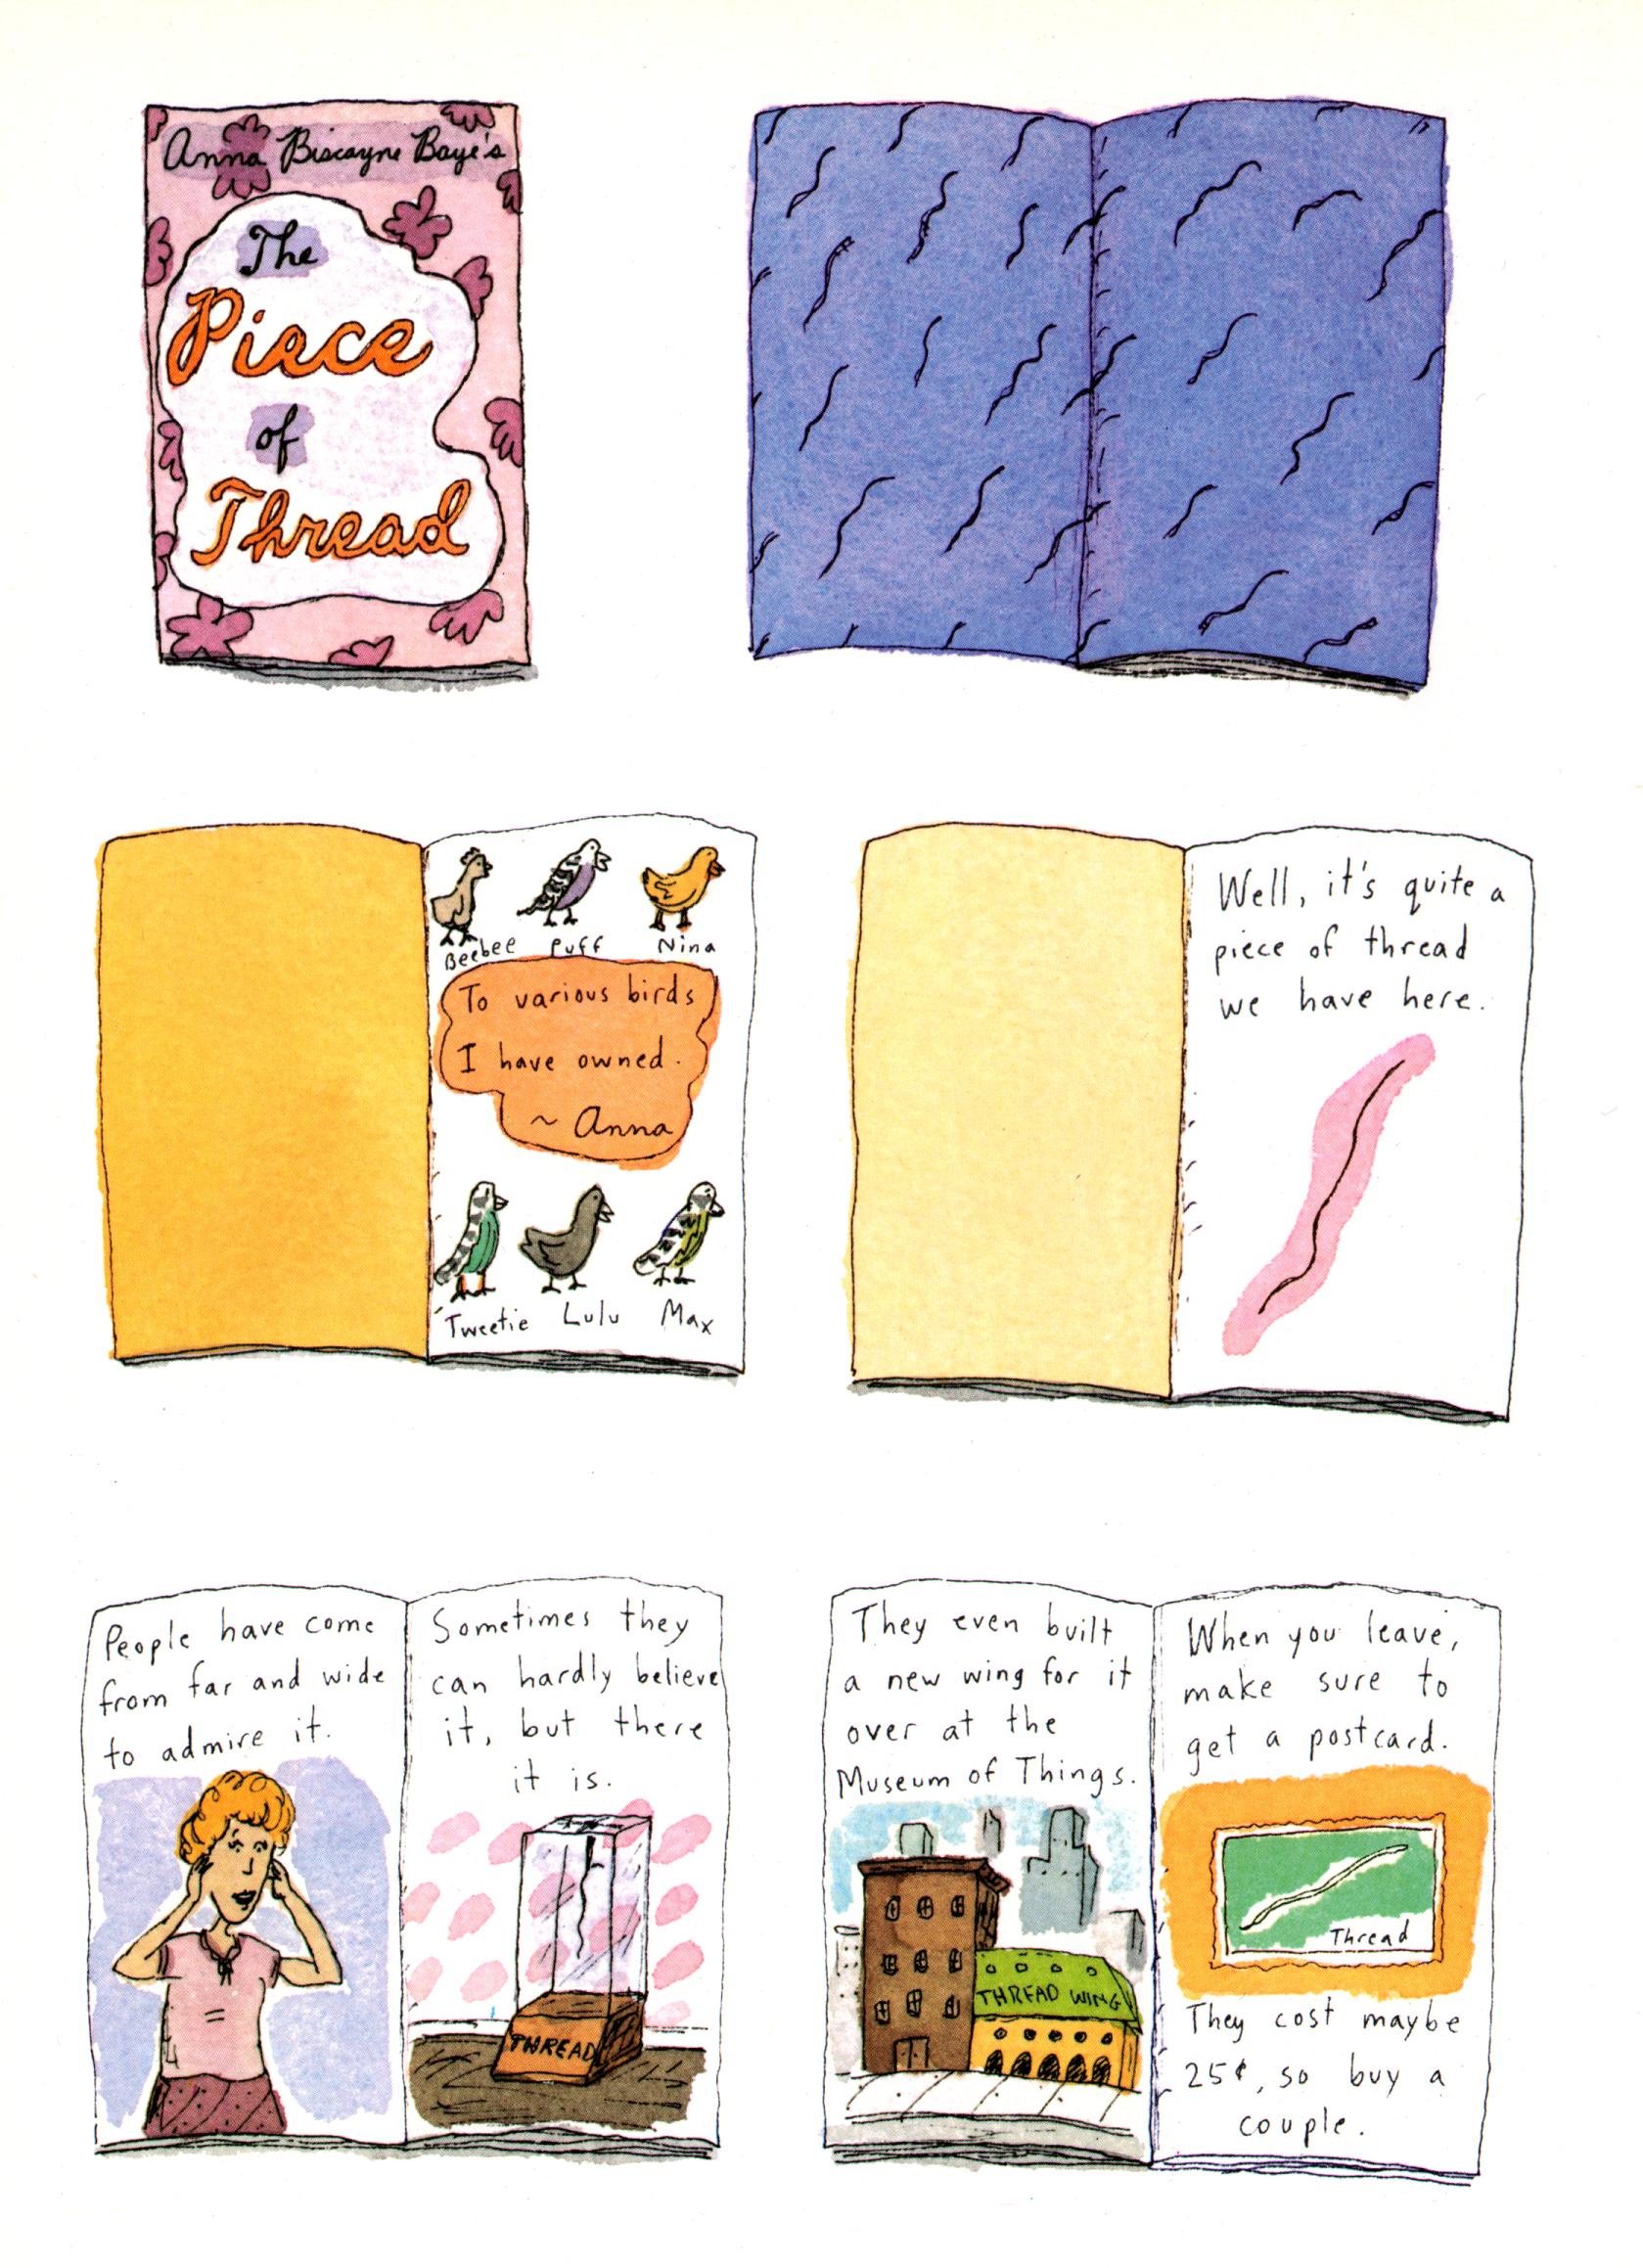 Anna Biscayne Baye's
The
Piece
of
Thread
Beebee Puff Nina
To various birds
I have owned.
~ Anna
Tweetie Lulu Max
Well, it's quite a
piece of thread
we have here.
People have come
from far and wide
to admire it.
Sometimes they
can hardly believe
it, but there
it is.
THREAD
They even built
a new wing for it
over at the
Museum of Things.
THREAD WING
When you leave,
make sure to
get a postcard.
Thread
They cost maybe
25¢, so buy a
couple.